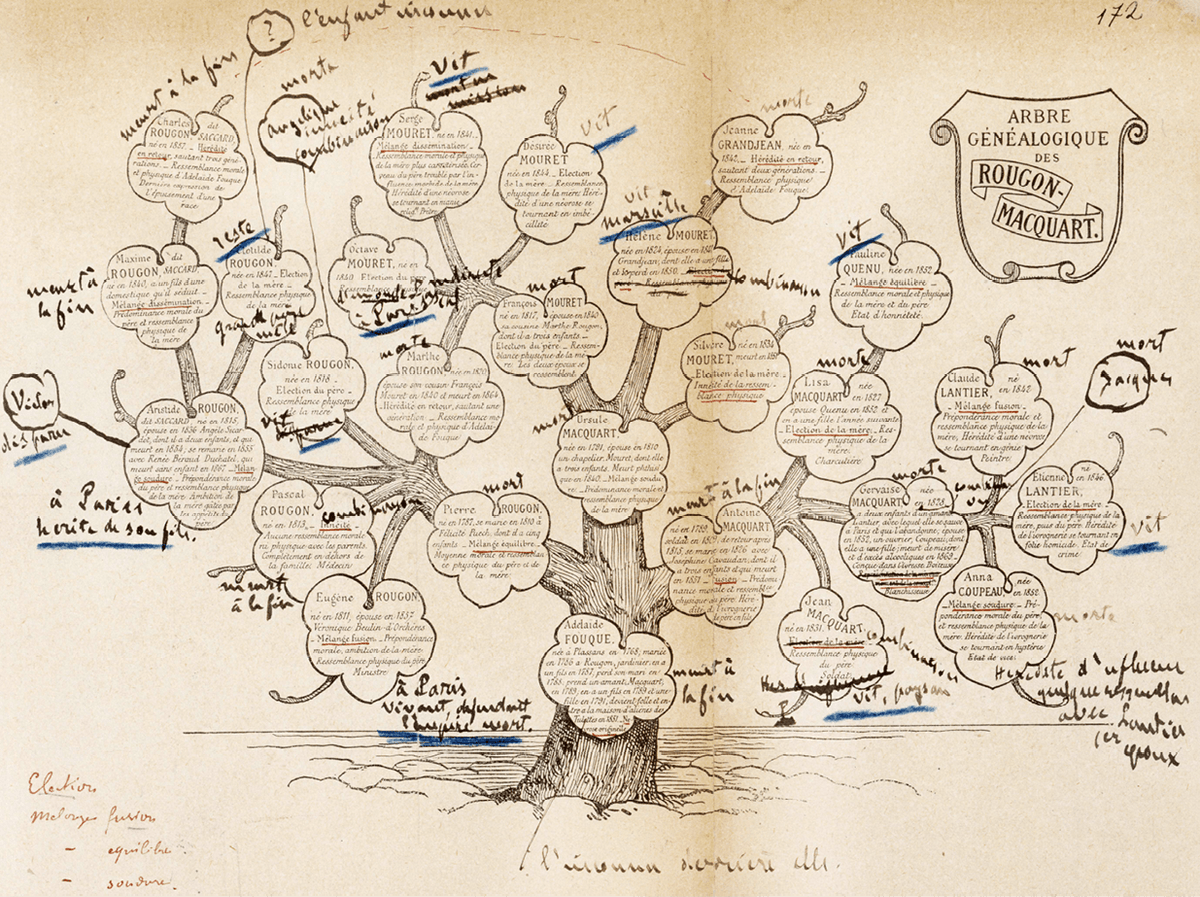 172
ARBRE
GÉNÉALOGIQUE
DES
ROUGON-
MACQUART.
?
l'enfant inconnu
meurt à la fin
Charles
ROUGON, dit
SACCARD,
né en 1857. — Hérédité
en retour, sautant trois géné-
rations. — Ressemblance morale
et physique d'Adélaïde Fouque.
Dernière expression de
l'épuisement d'une
race
morte
Angélique
innéité
combinaison
Vit
Serge
MOURET, né en 1841. —
Mélange dissémination. —
Ressemblance morale et physique
de la mère plus caractérisée. Cer-
veau du père troublé par l'in-
fluence morbide de la mère.
Hérédité d'une névrose se
tournant en mysti-
Prêtre
vit
Désirée
MOURET
née en 1844. — Élection
de la mère. — Ressemblance
physique de la mère. Héré-
dité d'une névrose se
tournant en imbé-
cillité.
morte
Jeanne
GRANDJEAN, née en
1842. — Hérédité en retour,
sautant deux générations. —
Ressemblance physique
d'Adélaïde Fouque.
meurt à
la fin
Maxime
ROUGON, dit SACCARD,
né en 1840, a un fils d'une
domestique qu'il séduit. —
Mélange dissémination. —
Prédominance morale du
père et ressemblance
physique de
la mère
reste
Clotilde
ROUGON,
née en 1847. — Élection
de la mère. —
Ressemblance physique
de la mère
Octave
MOURET, né en
1840. Élection du père
à Paris
vit
marseille
Hélène MOURET,
née en 1824, épouse en
Grandjean, dont elle a une fille
et le perd en 1850.
combinaison
mort
François
MOURET,
né en 1817, épouse en 1840
sa cousine Marthe Rougon,
dont il a trois enfants. —
Élection du père. — Res-
semblance physique de la mè-
re. Les deux époux se
ressemblent.
vit
Pauline
QUENU, née en 1852.
Mélange équilibre. —
Ressemblance morale et physique
de la mère et du père.
État d'honnêteté.
mort
Silvère
MOURET, né en 1834
meurt en 1851
Élection de la mère. —
Innéité de la ressem-
blance physique
Sidonie ROUGON,
née en 1818. —
Élection du père. —
Ressemblance physique
de la mère
vit
morte
Marthe
ROUGON, née en 1820,
épouse son cousin François
Mouret en 1840 et meurt en 1864
Hérédité en retour, sautant une
génération. — Ressemblance mo-
rale et physique d'Adélaïde
Fouque
morte
Lisa
MACQUART, née
en 1827
épouse Quenu en 1852 et en
a une fille l'année suivante
Élection de la mère. — Res-
semblance physique de la
mère.
Charcutière
mort
Claude
LANTIER, né
en 1842.
Mélange fusion. —
Prépondérance morale et
ressemblance physique de la
mère. Hérédité d'une névrose
se tournant en génie
Peintre
mort
Jacques
Victor
disparu
Aristide ROUGON,
dit SACCARD, né en 1815,
épouse en 1836 Angèle Sicar-
dot, dont il a deux enfants, et qui
meurt en 1854; se remarie en 1855
avec Renée Béraud Duchâtel, qui
meurt sans enfant en 1867. — Mélan-
ge soudure. — Prépondérance morale
du père et ressemblance physique
de la mère. Ambition de
la mère gâtée par
à Paris
hérite de son fils.
mort
Ursule
MACQUART,
née en 1791, épouse en 1810
un chapelier, Mouret, dont elle
a trois enfants. Meurt phtisi-
que en 1840. — Mélange soudu-
re. — Prédominance morale et
ressemblance physique
de la mère
meurt à la fin
Antoine
MACQUART
né en 1789,
soldat en 1809, de retour après
1815, se marie en 1826 avec
Joséphine Gavaudan, dont il
a trois enfants et qui meurt
en 1851. — Fusion. — Prédomi-
nance morale et ressemblance
physique du père. Héré-
dité d'ivrognerie
de père en fils
morte
Gervaise
MACQUART, née
en 1828,
a deux enfants d'un amant
Lantier avec lequel elle se sauve
à Paris et qui l'abandonne; épouse
en 1852, un ouvrier, Coupeau, dont
elle a une fille; meurt de misère
et d'excès alcooliques en 1869.
Conçue dans l'ivresse. Boiteuse.
Blanchisseuse
Étienne
LANTIER, né en 1846.
Élection de la mère. —
Ressemblance physique de la
mère, puis du père. Hérédité
de l'ivrognerie se tournant en
folie homicide. État de
crime
vit
Pascal
ROUGON,
né en 1813. — Innéité.
combinaison
Aucune ressemblance morale
ni physique avec les parents.
Complètement en dehors de
la famille. Médecin
meurt
à la fin
mort
Pierre ROUGON,
né en 1787, se marie en 1810 à
Félicité Puech, dont il a cinq
enfants. — Mélange équilibre.
Moyenne morale et ressemblan-
ce physique du père et de
la mère.
Eugène ROUGON,
né en 1811, épouse en 1857
Véronique Beulin-d'Orchères
— Mélange fusion. — Prépondérance
morale, ambition de la mère.
Ressemblance physique du père
Ministre
à Paris
vivant, défendant
l'empire mort.
Adélaïde
FOUQUE,
née à Plassans en 1768, mariée
en 1786 à Rougon, jardinier, en a
un fils en 1787, perd son mari en
1788, prend un amant, Macquart,
en 1789; en a un fils en 1789 et une
fille en 1791, devient folle et en-
tre à la maison d'aliénés des
Tulettes en 1851. — Né-
vrose originelle
meurt à
la fin
Jean
MACQUART,
né en 1831.
combinaison
Ressemblance physique
du père
Soldat
vit, paysan
Anna
COUPEAU, née
en 1852.
Mélange soudure. — Pré-
pondérance morale du père
et ressemblance physique de la
mère. Hérédité de l'ivrognerie
se tournant en hystérie
État de vice.
morte
Hérédité d'influence
avec Lantier
1er
époux
Election
Mélange fusion
— equilibre
— soudure.
l'inconnu derrière elle.